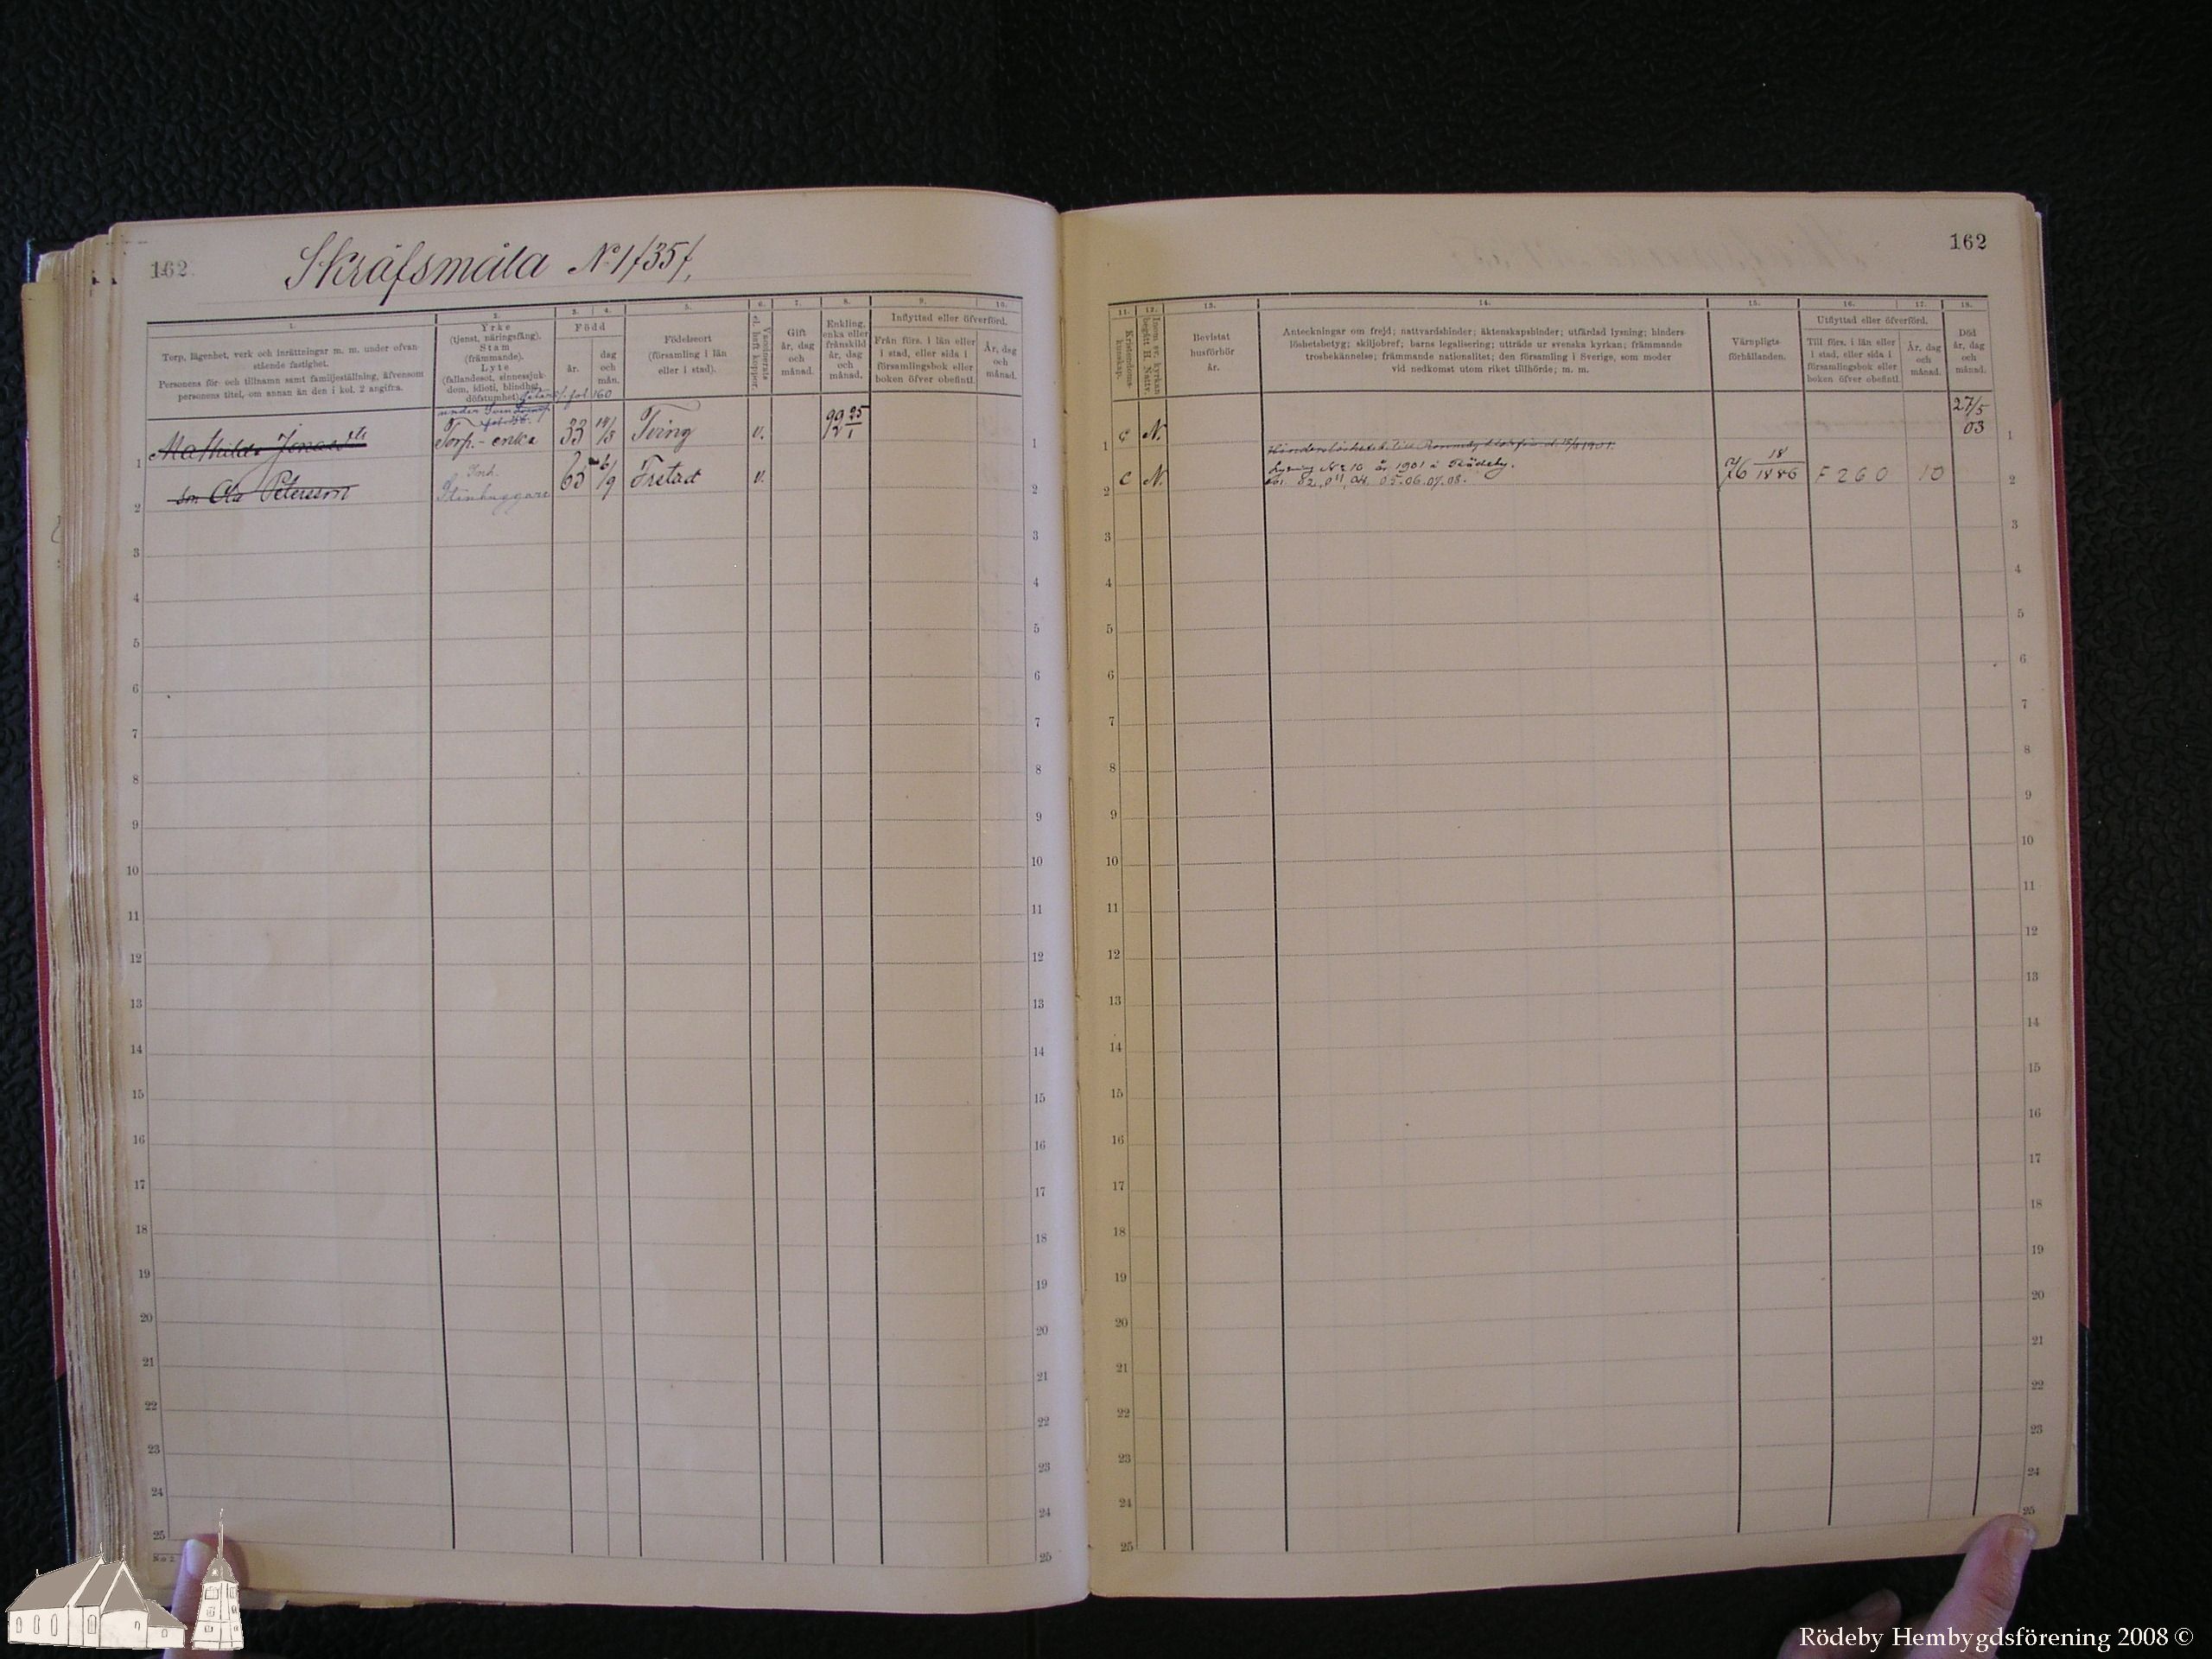 162
Skräfsmåla No 1/35/,
1.
Torp, lägenhet, verk och inrättningar m. m. under ofvan-
stående fastighet.
Personens för- och tillnamn samt familjeställning, äfvensom
personens titel, om annan än den i kol. 2 angifra.
2.
Yrke
(tjenst, näringsfång).
Stam
(främmande).
Lyte
(fallandesot, sinnessjuk-
dom, idioti, blindhet,
döfstumhet).
fol 160
3. 4.
Född
år.
dag
och
mån.
5.
Födelseort
(församling i län
eller i stad).
6.
Vaccinerats
el. haft koppor.
7.
Gift
år, dag
och
månad.
8.
Enkling,
enka eller
frånskild
år, dag
och
månad.
9. 10.
Inflyttad eller öfverförd.
Från förs. i län eller
i stad, eller sida i
församlingsbok eller
boken öfver obefintl.
År, dag
och
månad.
1 Mathilda Jonasdtr Torp.-enka 33 14/3 Tving v. 1
2 son Ola Petersson Inh. Stenhuggare 65 6/9 Fristad v. 2
3 3
4 4
5 5
6 6
7 7
8 8
9 9
10 10
11 11
12 12
13 13
14 14
15 15
16 16
17 17
18 18
19 19
20 20
21 21
22 22
23 23
24 24
25 25
162
11.
Kristendoms-
kunskap.
12.
Inom sv. kyrkan
begått H. Nattv.
13.
Bevistat
husförhör
år.
14.
Anteckningar om frejd; nattvardshinder; äktenskapshinder; utfärdad lysning; hinders-
löshetsbetyg; skiljobref; barns legalisering; utträde ur svenska kyrkan; främmande
trosbekännelse; främmande nationalitet; den församling i Sverige, som moder
vid nedkomst utom riket tillhörde; m. m.
15.
Värnpligts
förhållanden.
16. 17.
Utflyttad eller öfverförd.
Till förs. i län eller
i stad, eller sida i
församlingsbok eller
boken öfver obefintl.
År, dag
och
månad.
18.
Död
år, dag
och
månad.
27/5
03
1 C N. 1
Lysning No 10 år 1901 i Rödeby.
2 C N. 04. 05.06.07.08. 76 18/1886 F 260 10 2
3 3
4 4
5 5
6 6
7 7
8 8
9 9
10 10
11 11
12 12
13 13
14 14
15 15
16 16
17 17
18 18
19 19
20 20
21 21
22 22
23 23
24 24
25 25
Rödeby Hembygdsförening 2008 ©